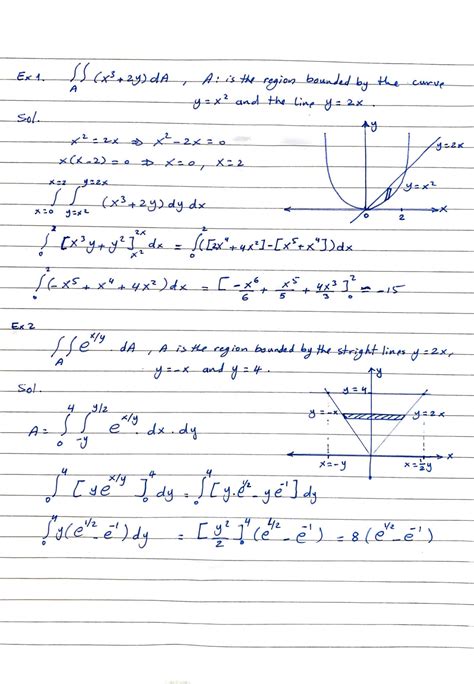 Ex 1. ∬_A (x³+2y) dA , A: is the region bounded by the curve
y = x² and the line y = 2x .
Sol.
x² = 2x ⇒ x² - 2x = 0
x(x-2) = 0 ⇒ x = 0, x = 2
y
y=2x
y=x²
0 2 x
∫_{x=0}^{x=2} ∫_{y=x²}^{y=2x} (x³+2y) dy dx
∫_0^2 [x³y + y²]_{x²}^{2x} dx = ∫_0^2 ([2x⁴+4x²]-[x⁵+x⁴]) dx
∫_0^2 (-x⁵ + x⁴ + 4x²) dx = [-x⁶/6 + x⁵/5 + 4x³/3]_0^2 = -15
Ex 2
∬_A e^{x/y} dA , A is the region bounded by the stright lines y = 2x,
y = -x and y = 4 .
Sol.
y
y=4
y=-x y=2x
x
x=-y x=½y
A = ∫_0^4 ∫_{-y}^{y/2} e^{x/y} . dx . dy
∫_0^4 [y e^{x/y}]_0^4 dy = ∫_0^4 [y.e^{1/2} - y e^{-1}] dy
∫_0^4 y(e^{1/2} - e^{-1}) dy = [y²/2]_0^4 (e^{1/2} - e^{-1}) = 8 (e^{1/2} - e^{-1})